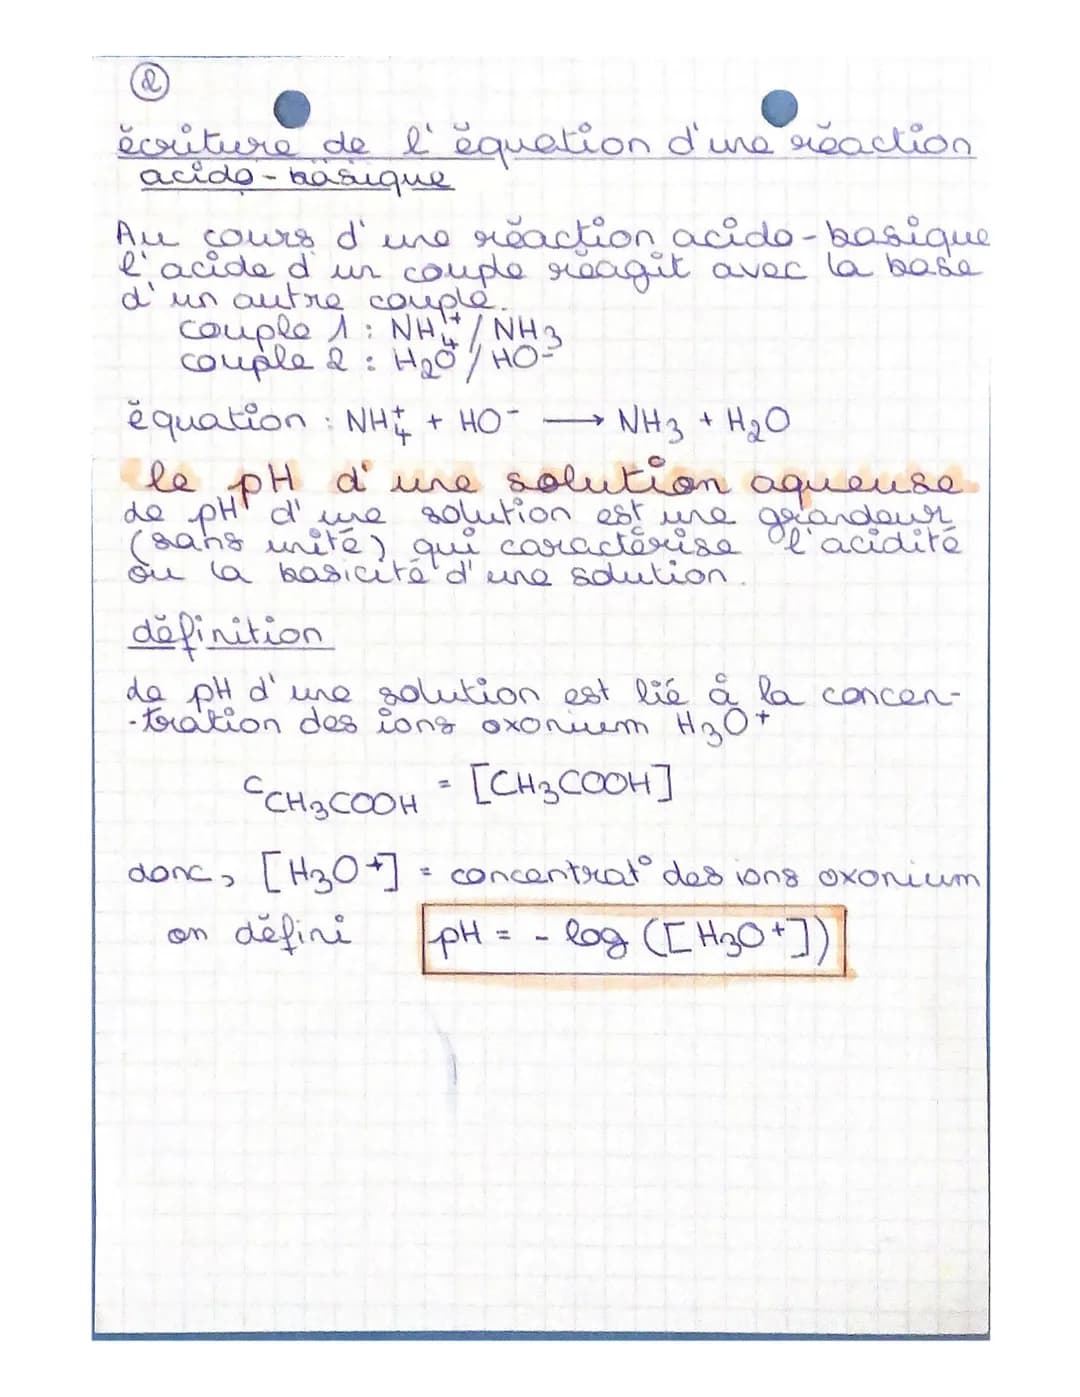 2
écriture de l'équation d'une réaction
acido-basique
Au cours d'une réaction acido-basique
l'acide d'un couple réagit avec la base
d'un autre couple.
couple 1 : NH₄⁺ / NH₃
couple 2 : H₂O / HO⁻
équation : NH₄⁺ + HO⁻ → NH₃ + H₂O
le pH d'une solution aqueuse
Le pH d'une solution est une grandeur
(sans unité) qui caractérise l'acidité
ou la basicité d'une solution.
définition
Le pH d'une solution est lié à la concen-
-tration des ions oxonium H₃O⁺
C_CH₃COOH = [CH₃COOH]
donc, [H₃O⁺] = concentrat° des ions oxonium
on défini pH = - log ([H₃O⁺])